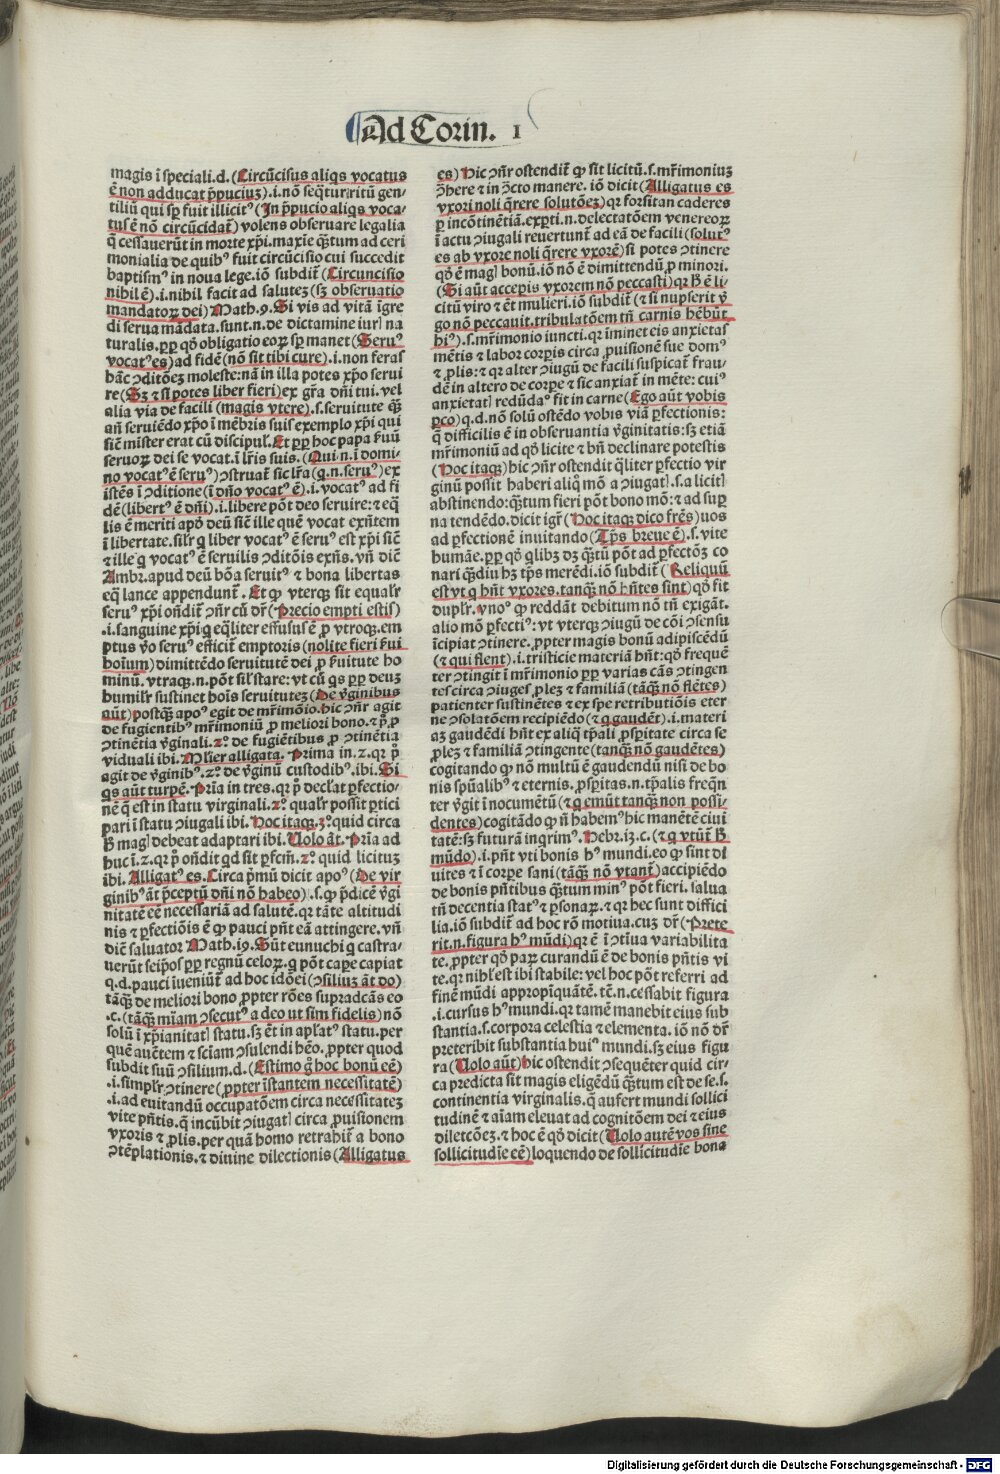 Ad Corin. I
magis ī speciali.d.(Circūcisus aliqs vocatus
ē non adducat p̄puciuz).i.nō seq̄tur ritū gen-
tiliū qui sp̄ fuit illicitꝰ (In p̄pucio aliqs voca-
tus ē nō circūcidat̄) volens obseruare legalia
q̄ cessauerūt in morte xp̄i.maxīe q̄ꝫtum ad ceri
monialia de quibꝰ fuit circūcisio cui succedit
baptismꝰ in noua lege.iō subdit̄ (Circuncisio
nihil ē).i.nihil facit ad salutez (sꝫ obseruatio
mandatoꝝ dei) Math.9.Si vis ad vitā īgre
di serua mādata.sunt.n.de dictamine iurꝭ na
turalis.ꝑp qd̄ obligatio eoꝝ sp̄ manet (Seruꝰ
vocatꝰ es) ad fidē (nō sit tibi cure).i.non feras
hāc ꝯditōez moleste:nā in illa potes xp̄o serui
re (Sꝫ & si potes liber fieri) ex gr̄a dn̄i tui.vel
alia via de facili (magis vtere).s.seruitute q̄ꝫ
an̄ seruiēdo xp̄o ī mēbris suis exemplo xp̄i qui
sic̄ mīster erat cū discipulꝭ.Et ꝑp hoc papa ẜuū
seruoꝝ dei se vocat.ī lr̄is suis.(Qui.n.ī domi-
no vocatꝰ ē seruꝰ) ꝯstruat̄ sic lr̄a (q.n.seruꝰ) ex
istēs ī ꝯditione (ī dn̄o vocatꝰ ē).i.vocatꝰ ad fi
dē (libertꝰ ē dn̄i).i.libere pōt deo seruire:& eq̄
lis ē meriti apd̄ deū sic̄ ille quē vocat exn̄tem
ī libertate.sil'r q liber vocatꝰ ē seruꝰ est xp̄i sic̄
& ille q vocatꝰ ē seruilis ꝯditōis exn̄s.vn̄ dic̄
Ambr.apud deū bōa seruitꝰ & bona libertas
eq̄ lance appendunt̄.Et ꝙ vterqꝫ sit equalr̄
seruꝰ xp̄i on̄dit̄ ꝯn̄r cū dr̄ (Precio empti estis)
.i.sanguine xp̄i q eq̄liter effusus ē ꝓ vtroqꝫ.em
ptus v̄o seruꝰ efficit̄ emptoris (nolite fieri ẜui
hoīum) dimittēdo seruitutē dei ꝓ ẜuitute ho
minū.vtraqꝫ.n.pōt sil' stare:vt cū qs ꝑp deuz
humilr̄ sustinet hoīs seruitutez (De v̄ginibus
aūt) postq̄ꝫ apoꝰ egit de mr̄imōio.hic ꝯn̄r agit
de fugientibꝰ mr̄imoniū ꝓ meliori bono.& p̄ ꝓ
ꝯtinētia v̄ginali.2º de fugiētibus ꝓ ꝯtinētia
viduali ibi.Mlier alligata.Prima in.2.qꝛ p̄
agit de v̄ginibꝰ.2º de v̄ginū custodibꝰ.ibi.Si
qs aūt turpē.Pr̄ia in tres.qꝛ p̄ declat ꝑfectio-
nē q̄ est in statu virginali.2º qualr̄ possit ꝑtici
pari ī statu ꝯiugali ibi.Hoc itaqꝫ.3º quid circa
ħ magꝭ debeat adaptari ibi.Uolo āt.Pr̄ia ad
huc ī.2.qꝛ p̄ on̄dit qd sit ꝑfcm̄.2º quid licituz
ibi.Alligatꝰ es.Circa p̄mū dicit apoꝰ (De vir
ginibꝰ āt p̄ceptū dn̄i nō habeo).s.ꝙ p̄dicē v̄gi
nitatē ēe necessariā ad salutē.qꝛ tāte altitudi
nis & ꝑfectiōis ē ꝙ pauci pn̄t eā attingere.vn̄
dic̄ saluator Math.19.Sūt eunuchi q castra-
uerūt seip̄os ꝑp regnū celoꝝ.q pōt caꝑe capiat
q.d.pauci īueniūt̄ ad hoc idōei (ꝯsilium āt do)
tāq̄ꝫ de meliori bono ꝓpter rōes supradcās eo
.c.(tāq̄ꝫ mīam ꝯsecutꝰ a deo ut sim fidelis) nō
solū ī xp̄ianitatꝭ statu.sꝫ ēt in apl'atꝰ statu.per
quē auc̄tem & sciam ꝯsulendi hēo.ꝓpter quod
subdit suū ꝯsilium.d.(Estimo g̊ hoc bonū ēe)
.i.simplr̄ ꝯtinere (ꝓpter īstantem necessitatē)
.i.ad euitandū occupatōem circa necessitatez
vite pn̄tis.q̄ incūbit ꝯiugatꝭ circa ꝓuisionem
vxoris & ꝓlis.per quā homo retrahit̄ a bono
ꝯtēplationis.& diuine dilectionis (Alligatus
es) Hic ꝯn̄r ostendit̄ ꝙ sit licitū.s.mr̄imoniuz
ꝯ̄here & in ꝯ̄cto manere.iō dicit (Alligatus es
vxori noli q̄rere solutōez) qꝛ forsitan caderes
ꝑ incōtinētiā.exꝑti.n.delectatōem venereoꝝ
ī actu ꝯiugali reuertunt̄ ad eā de facili (solutꝰ
es ab vxore noli q̄rere vxorē) si potes ꝯtinere
qd̄ ē magꝭ bonū.iō nō ē dimittendū ꝓ minori.
(Si aūt acceꝑis vxorem nō peccasti) qꝛ ħ ē li-
citū viro & ēt mulieri.iō subdit̄ (& si nupserit v̄
go nō peccauit.tribulatōem tn̄ carnis hēbūt
hiꝰ).s.mr̄imonio iuncti.qꝛ īminet eis anxietas
mētis & labor corꝑis circa ꝓuisionē sue domꝰ
& ꝓlis:& qꝛ alter ꝯiugū de facili suspicat̄ frau-
dē in altero de corꝑe & sic anxiat̄ in mēte:cuiꝰ
anxietatꝭ redūdaꝰ fit in carne (Ego aūt vobis
ꝑco) q.d.nō solū ostēdo vobis viā ꝑfectionis:
q̄ difficilis ē in obseruantia v̄ginitatis:sꝫ etiā
mr̄imoniū ad qd̄ licite & bn̄ declinare potestis
(Hoc itaqꝫ) hic ꝯn̄r ostendit q̄liter ꝑfectio vir
ginū possit haberi aliq̄ mō a ꝯiugatꝭ.s.a licitꝭ
abstinendo:q̄ꝫtum fieri pōt bono mō:& ad suꝑ
na tendēdo.dicit igr̄ (Hoc itaqꝫ dico fr̄es) uos
ad ꝑfectionē inuitando (Tp̄s breue ē).s.vite
humāe.ꝑp qd̄ qlibꝫ dꝫ q̄ꝫtū pōt ad ꝑfectōꝫ co
nari q̄ꝫdiu hꝫ tp̄s merēdi.iō subdit̄ (Reliquū
est vt q hn̄t vxores.tanq̄ꝫ nō hn̄tes sint) qd̄ fit
duplr̄.vnoº ꝙ reddāt debitum nō tn̄ exigāt.
alio mō ꝑfectiꝰ:vt vterqꝫ ꝯiugū de cōi ꝯsensu
īcipiat ꝯtinere.ꝓpter magis bonū adipiscēdū
(& qui flent).i.tristicie materiā hn̄t:qd̄ frequē
ter ꝯtingit ī mr̄imonio ꝑp varias cās ꝯtingen
tes circa ꝯiuges ꝓlez & familiā (tāq̄ꝫ nō flētes)
patienter sustinētes & ex spe retributiōis eter
ne ꝯsolatōem recipiēdo (& q gaudēt).i.materi
aꝫ gaudēdi hn̄t ex aliq̄ tp̄ali ꝓsꝑitate circa se
ꝓlez & familiā ꝯtingente (tanq̄ꝫ nō gaudētes)
cogitando ꝙ nō multū ē gaudendū nisi de bo
nis spūalibꝰ & eternis.ꝓsꝑitas.n.tp̄alis freqn̄
ter v̄git ī nocumētū (& q emūt tanq̄ꝫ non possi-
dentes) cogitādo ꝙ n̄ habemꝰ hic manētē ciui
tatē:sꝫ futurā inqrimꝰ.Hebr.13.c.(& q vtūt̄ ħ
mūdo).i.pn̄t vti bonis hꝰ mundi.eo ꝙ sint di
uites & ī corꝑe sani (tāq̄ꝫ nō vtant̄) accipiēdo
de bonis pn̄tibus q̄ꝫtum minꝰ pōt fieri.salua
tn̄ decentia statꝰ & ꝑsonaꝝ.& qꝛ hec sunt diffici
lia.iō subdit̄ ad hoc rō motiua.cuz dr̄ (Prete
rit.n.figura hꝰ mūdi) qꝛ ē ī ꝯtīua variabilita
te.ꝓpter qd̄ paꝝ curandū ē de bonis pn̄tis vi
te.qꝛ nihl' est ibi stabile:vel hoc pōt referri ad
finē mūdi appropīquātē.tc̄.n.cessabit figura
.i.cursus hꝰ mundi.qꝛ tamē manebit eius sub
stantia.s.corpora celestia & elementa.iō nō dr̄
preteribit substantia huiꝰ mundi.sꝫ eius figu
ra (Uolo aūt) hic ostendit ꝯsequēter quid cir-
ca predicta sit magis eligēdū q̄ꝫtum est de se.s.
continentia virginalis.q̄ aufert mundi sollici
tudinē & aīam eleuat ad cognitōem dei & eius
dilectōez.& hoc ē qd̄ dicit (Uolo autē vos sine
sollicitudīe ēe) loquendo de sollicitudīe bona
Digitalisierung gefördert durch die Deutsche Forschungsgemeinschaft - DFG